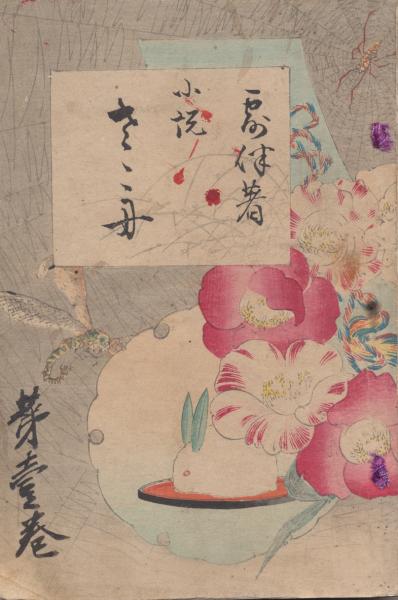 露伴著
小説
さゝ舟
第壹巻